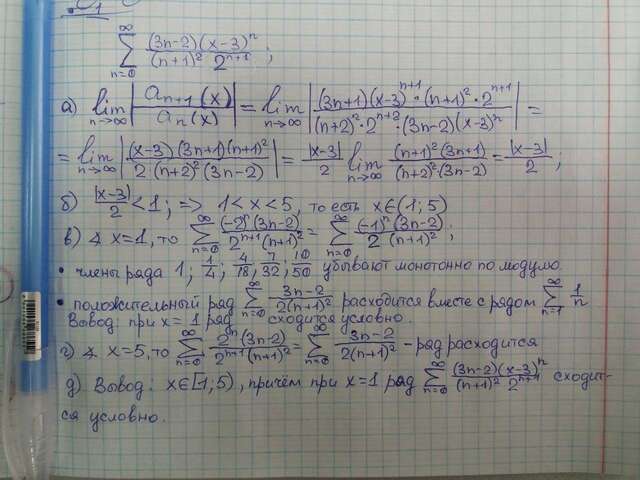 C1
\sum_{n=0}^{\infty} \frac{(3n-2)(x-3)^n}{(n+1)^2 2^{n+1}};
а) \lim_{n→∞} |\frac{a_{n+1}(x)}{a_n(x)}| = \lim_{n→∞} |\frac{(3n+1)(x-3)^{n+1} \cdot (n+1)^2 \cdot 2^{n+1}}{(n+2)^2 \cdot 2^{n+2} \cdot (3n-2)(x-3)^n}| =
= \lim_{n→∞} |\frac{(x-3)(3n+1)(n+1)^2}{2(n+2)^2(3n-2)}| = \frac{|x-3|}{2} \lim_{n→∞} \frac{(n+1)^2(3n+1)}{(n+2)^2(3n-2)} = \frac{|x-3|}{2};
б) \frac{|x-3|}{2} < 1; => 1 < x < 5, то есть x∈(1;5)
в) ∢ x=1, то \sum_{n=0}^{\infty} \frac{(-2)^n(3n-2)}{2^{n+1}(n+1)^2} = \sum_{n=0}^{\infty} \frac{(-1)^n(3n-2)}{2(n+1)^2};
• члены ряда 1; \frac{1}{4}; \frac{4}{18}; \frac{7}{32}; \frac{10}{50} убывают монотонно по модулю.
• положительный ряд \sum_{n=0}^{\infty} \frac{3n-2}{2(n+1)^2} расходится вместе с рядом \sum_{n=1}^{\infty} \frac{1}{n}
Вывод: при x=1 ряд сходится условно.
г) ∢ x=5, то \sum_{n=0}^{\infty} \frac{2^n(3n-2)}{2^{n+1}(n+1)^2} = \sum_{n=0}^{\infty} \frac{3n-2}{2(n+1)^2} - ряд расходится
д) Вывод: x∈[1;5), причём при x=1 ряд \sum_{n=0}^{\infty} \frac{(3n-2)(x-3)^n}{(n+1)^2 2^{n+1}} сходит-
ся условно.